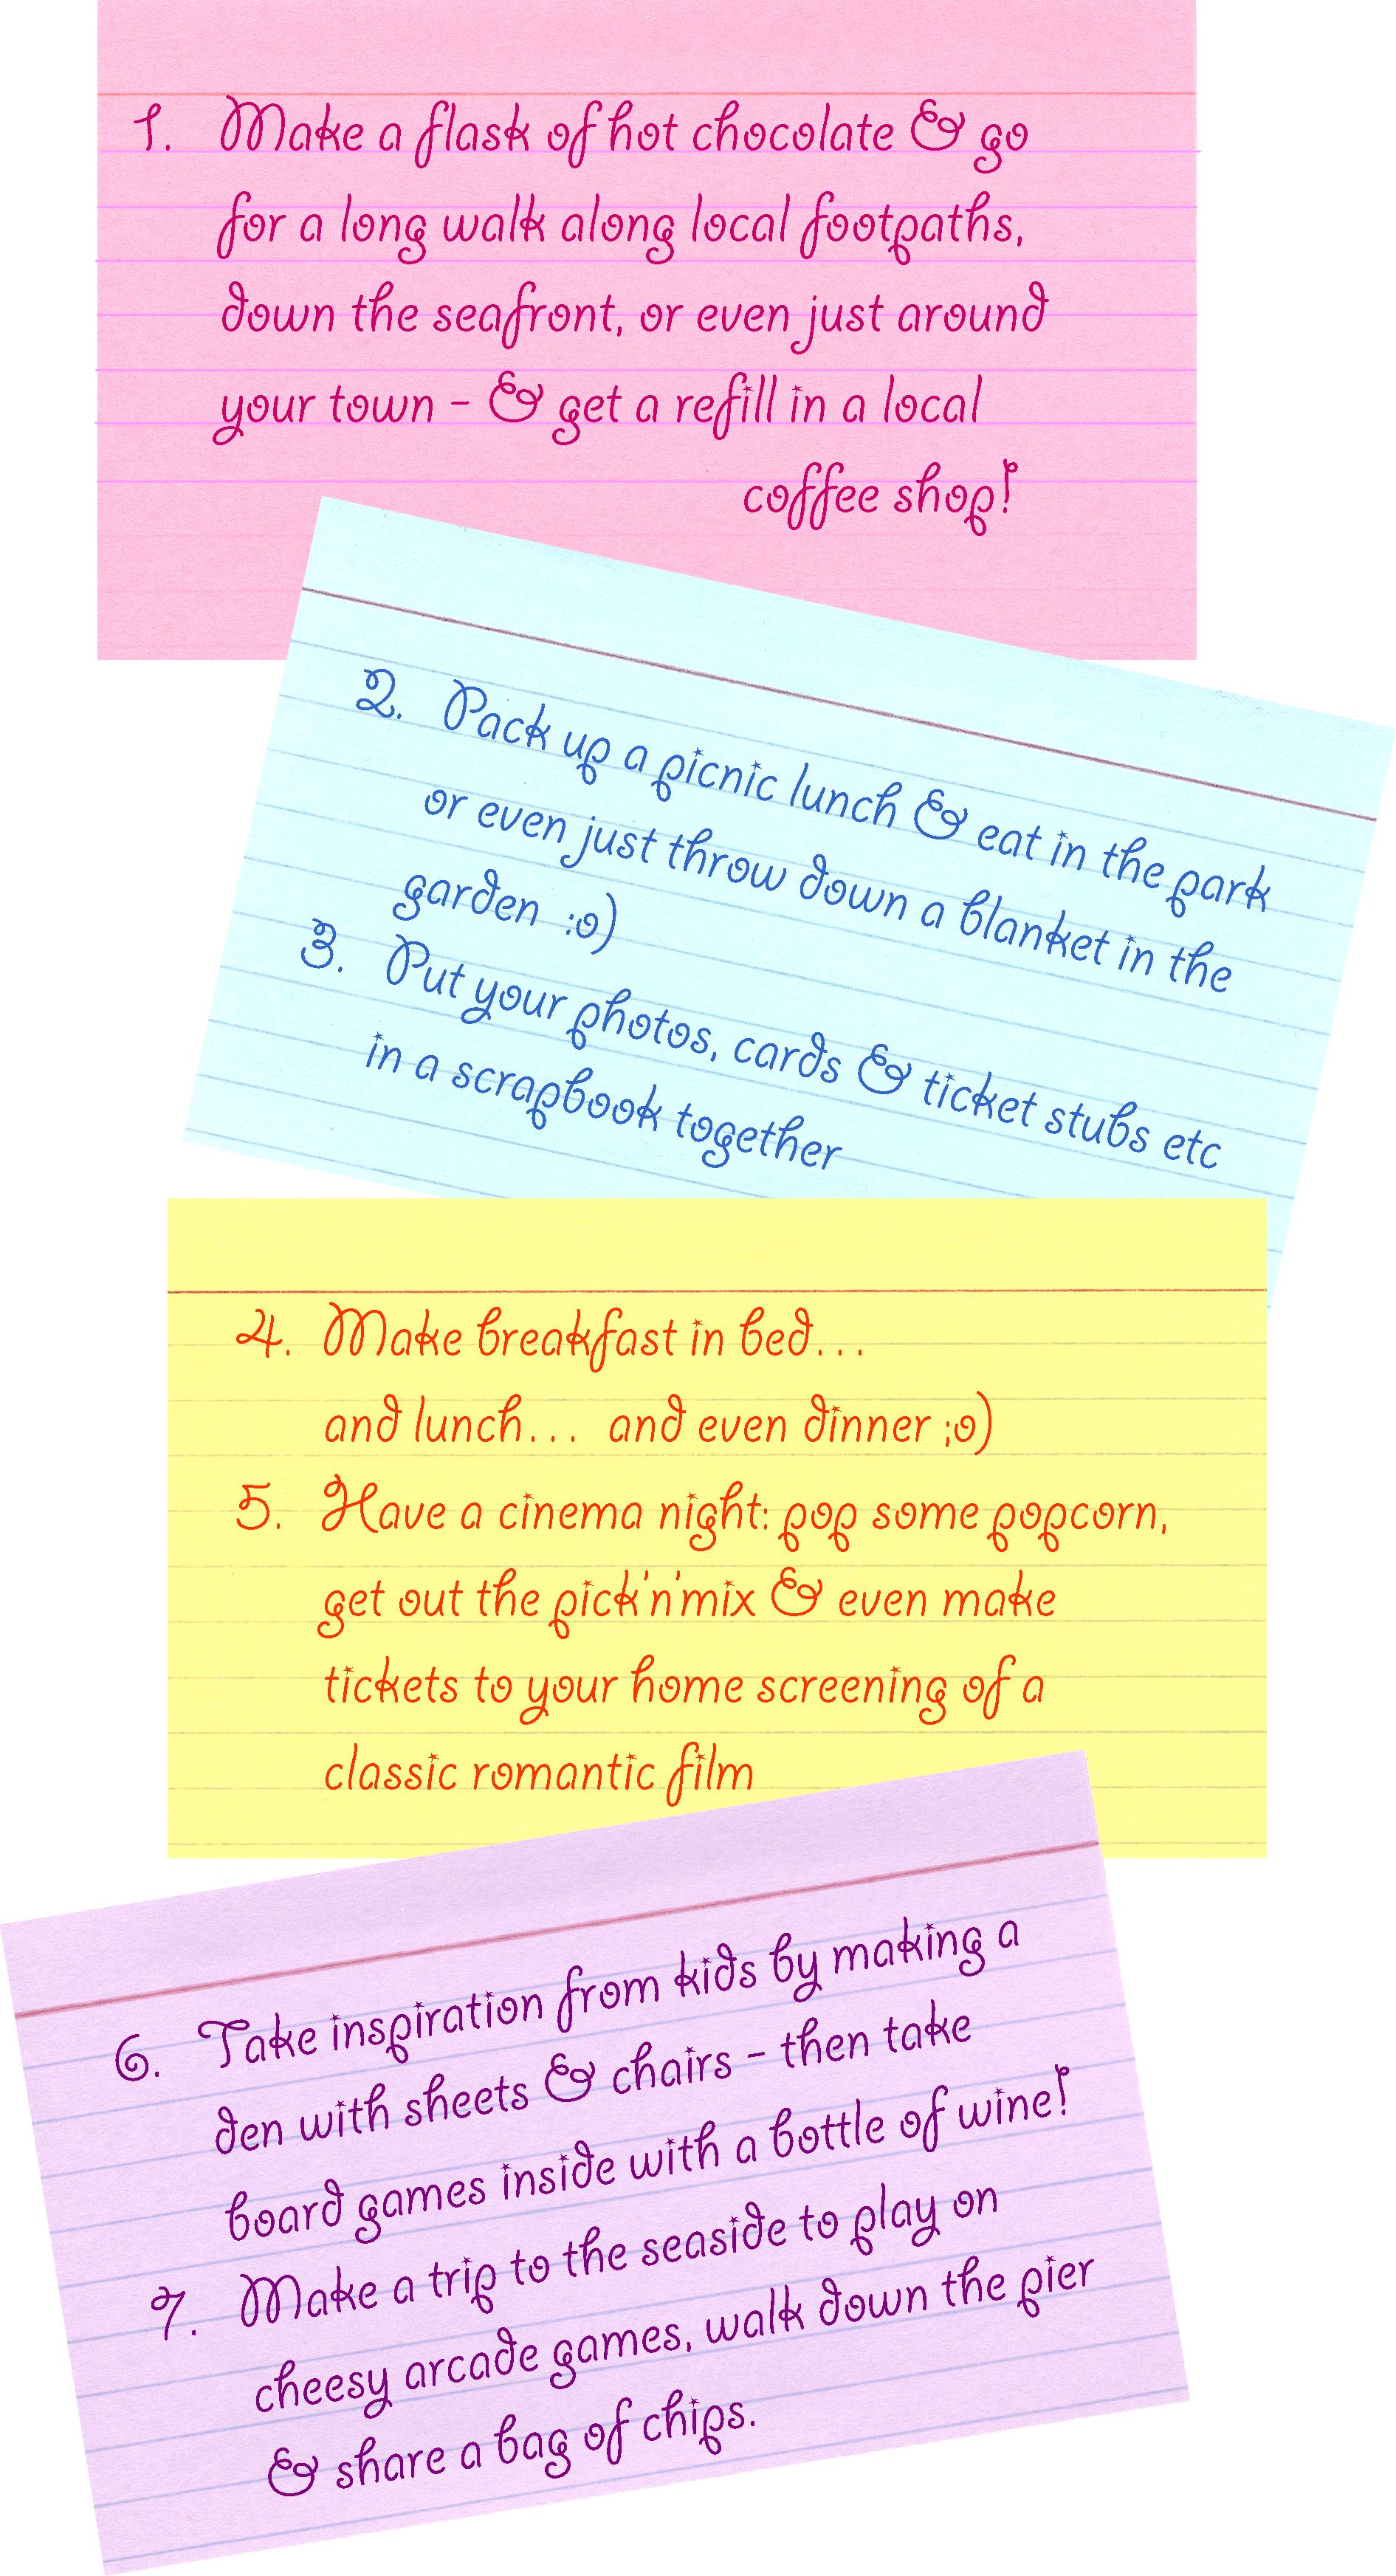 1. Make a flask of hot chocolate & go
for a long walk along local footpaths,
down the seafront, or even just around
your town - & get a refill in a local
coffee shop!
2. Pack up a picnic lunch & eat in the park
or even just throw down a blanket in the
garden :o)
3. Put your photos, cards & ticket stubs etc
in a scrapbook together
4. Make breakfast in bed...
and lunch... and even dinner ;o)
5. Have a cinema night: pop some popcorn,
get out the pick'n'mix & even make
tickets to your home screening of a
classic romantic film
6. Take inspiration from kids by making a
den with sheets & chairs - then take
board games inside with a bottle of wine!
7. Make a trip to the seaside to play on
cheesy arcade games, walk down the pier
& share a bag of chips.